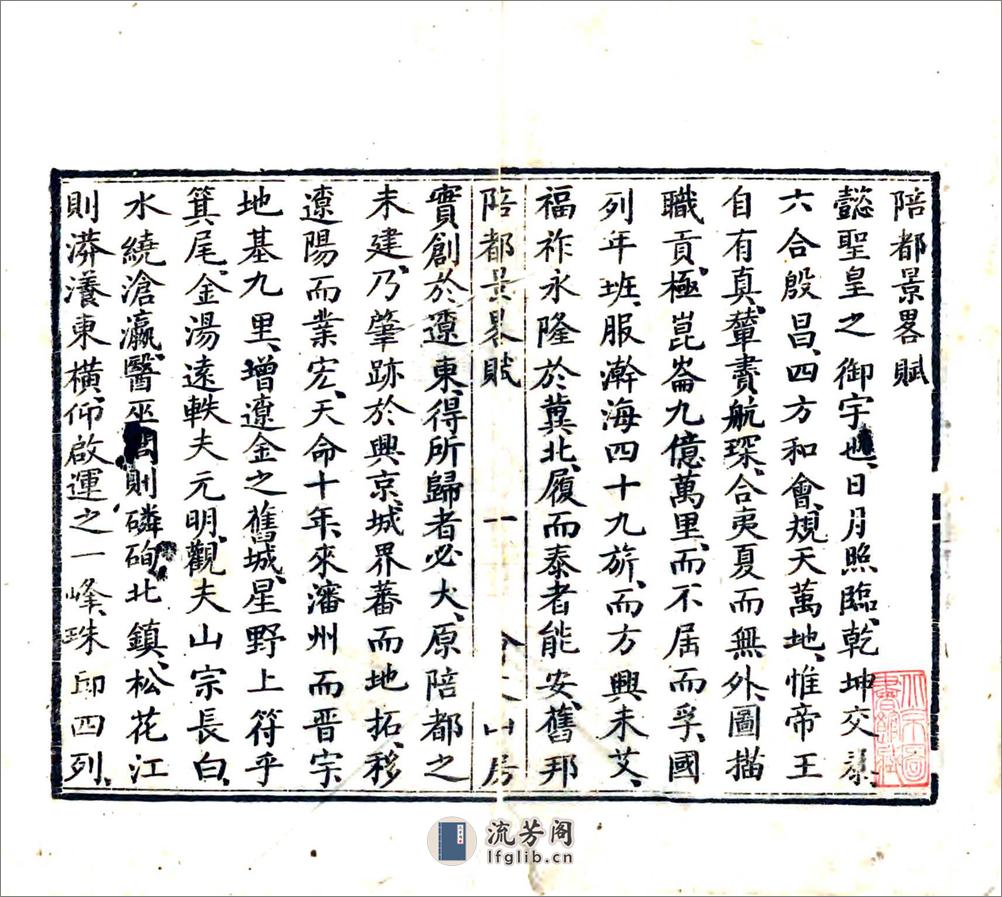 陪都景畧賦
懿聖皇之　御宇也、日月照臨、乾坤交泰、
六合殷昌、四方和會、規天萬地、惟帝王
自有真、輦賮航琛、合夷夏而無外、圖描
職貢、極崑崙九億萬里、而不居而孚、國
列年班、服瀚海四十九旂、而方興未艾、
福祚永隆於冀北、履而泰者能安、舊邦
陪都景畧賦　一　山房
實創於遼東、得所歸者必大、原陪都之
未建、乃肇跡於興京、城界蕃而地拓、移
遼陽而業宏、天命十年、來瀋州而晋宇、
地基九里、增遼金之舊城、星野上符乎
箕尾、金湯遠軼夫元明、觀夫山宗長白、
水繞滄瀛、醫巫閭則磷硇北鎮、松花江
則漭瀁東橫、仰啟運之一峰、珠邱四列、
流芳阁
lfglib.cn